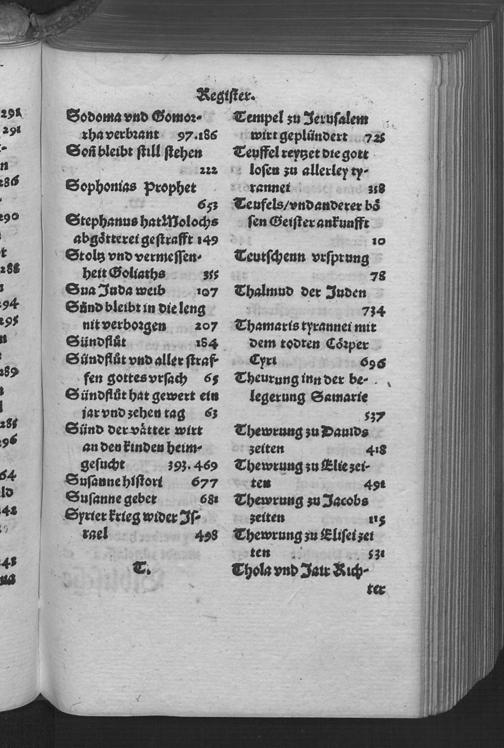 Register.
Sodoma vnd Gomor-
rha verbrant 97.186
Soñ bleibt still stehen
222
Sophonias Prophet
653
Stephanus hat Molochs
abgötterei gestrafft 149
Stoltz vnd vermessen-
heit Goliaths 355
Sua Juda weib 107
Sünd bleibt in die leng
nit verborgen 207
Sündflůt 184
Sündflůt vnd aller straf-
fen gottes vrsach 65
Sündflůt hat gewert ein
jar vnd zehen tag 63
Sünd der vätter wirt
an den kinden heim-
gesucht 393.469
Susanne histori 677
Susanne gebet 681
Syrier krieg wider Is-
rael 498
T.
Tempel zu Jerusalem
wirt geplündert 725
Teyffel reytzet die gott
losen zu allerley ty-
rannei 318
Teufels/vnd anderer bö
sen Geister ankunfft
10
Teutschenn vrsprung
78
Thalmud der Juden
734
Thamaris tyrannei mit
dem todten Cörper
Cyri 696
Theurung inn der be-
legerung Samarie
537
Thewrung zu Dauids
zeiten 418
Thewrung zu Elie zei-
ten 491
Thewrung zu Jacobs
zeiten 115
Thewrung zu Elisei zei
ten 531
Thola vnd Jair Rich-
ter
291
291
286
290
288
294
295
289
285
296
64
42
48